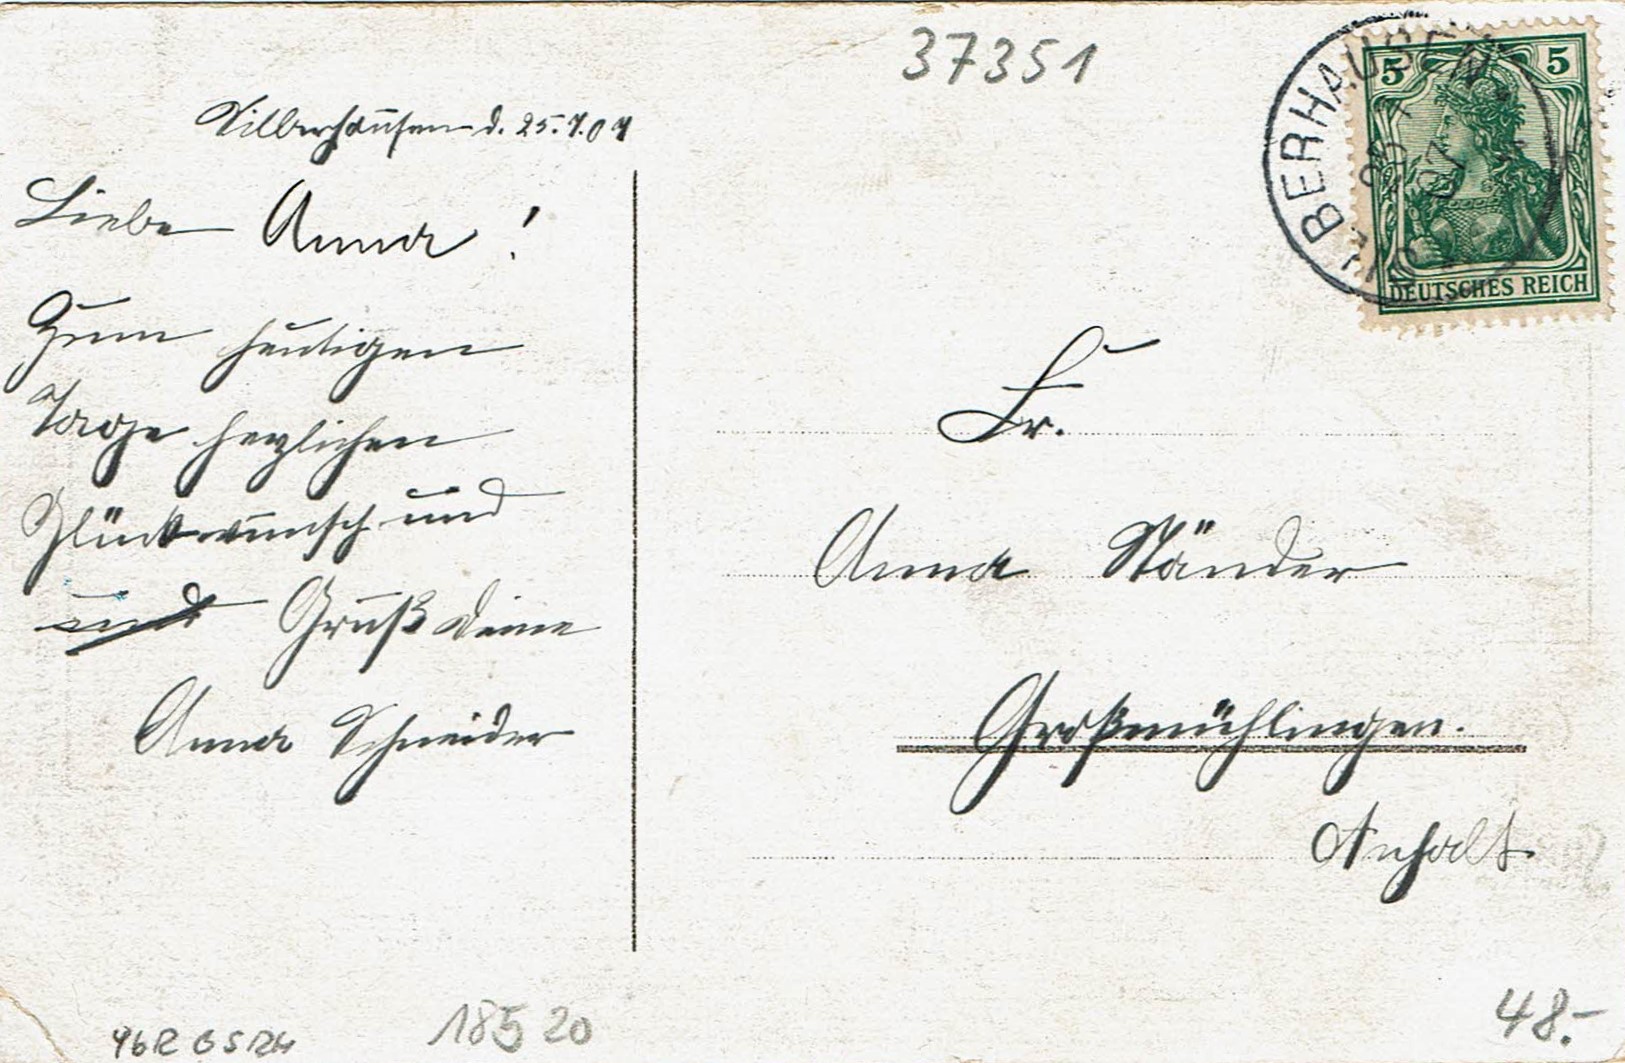 37351
Silberhausen d. 25.7.07
Liebe Anna!
Zum heutigen
Tage herzlichen
Glückwunsch und
und Gruß deine
Anna Schneider
BERHAUSEN
25
07
5 5
DEUTSCHES REICH
Fr.
Anna Ständer
Großmühlingen.
Anhalt.
18520
48.-